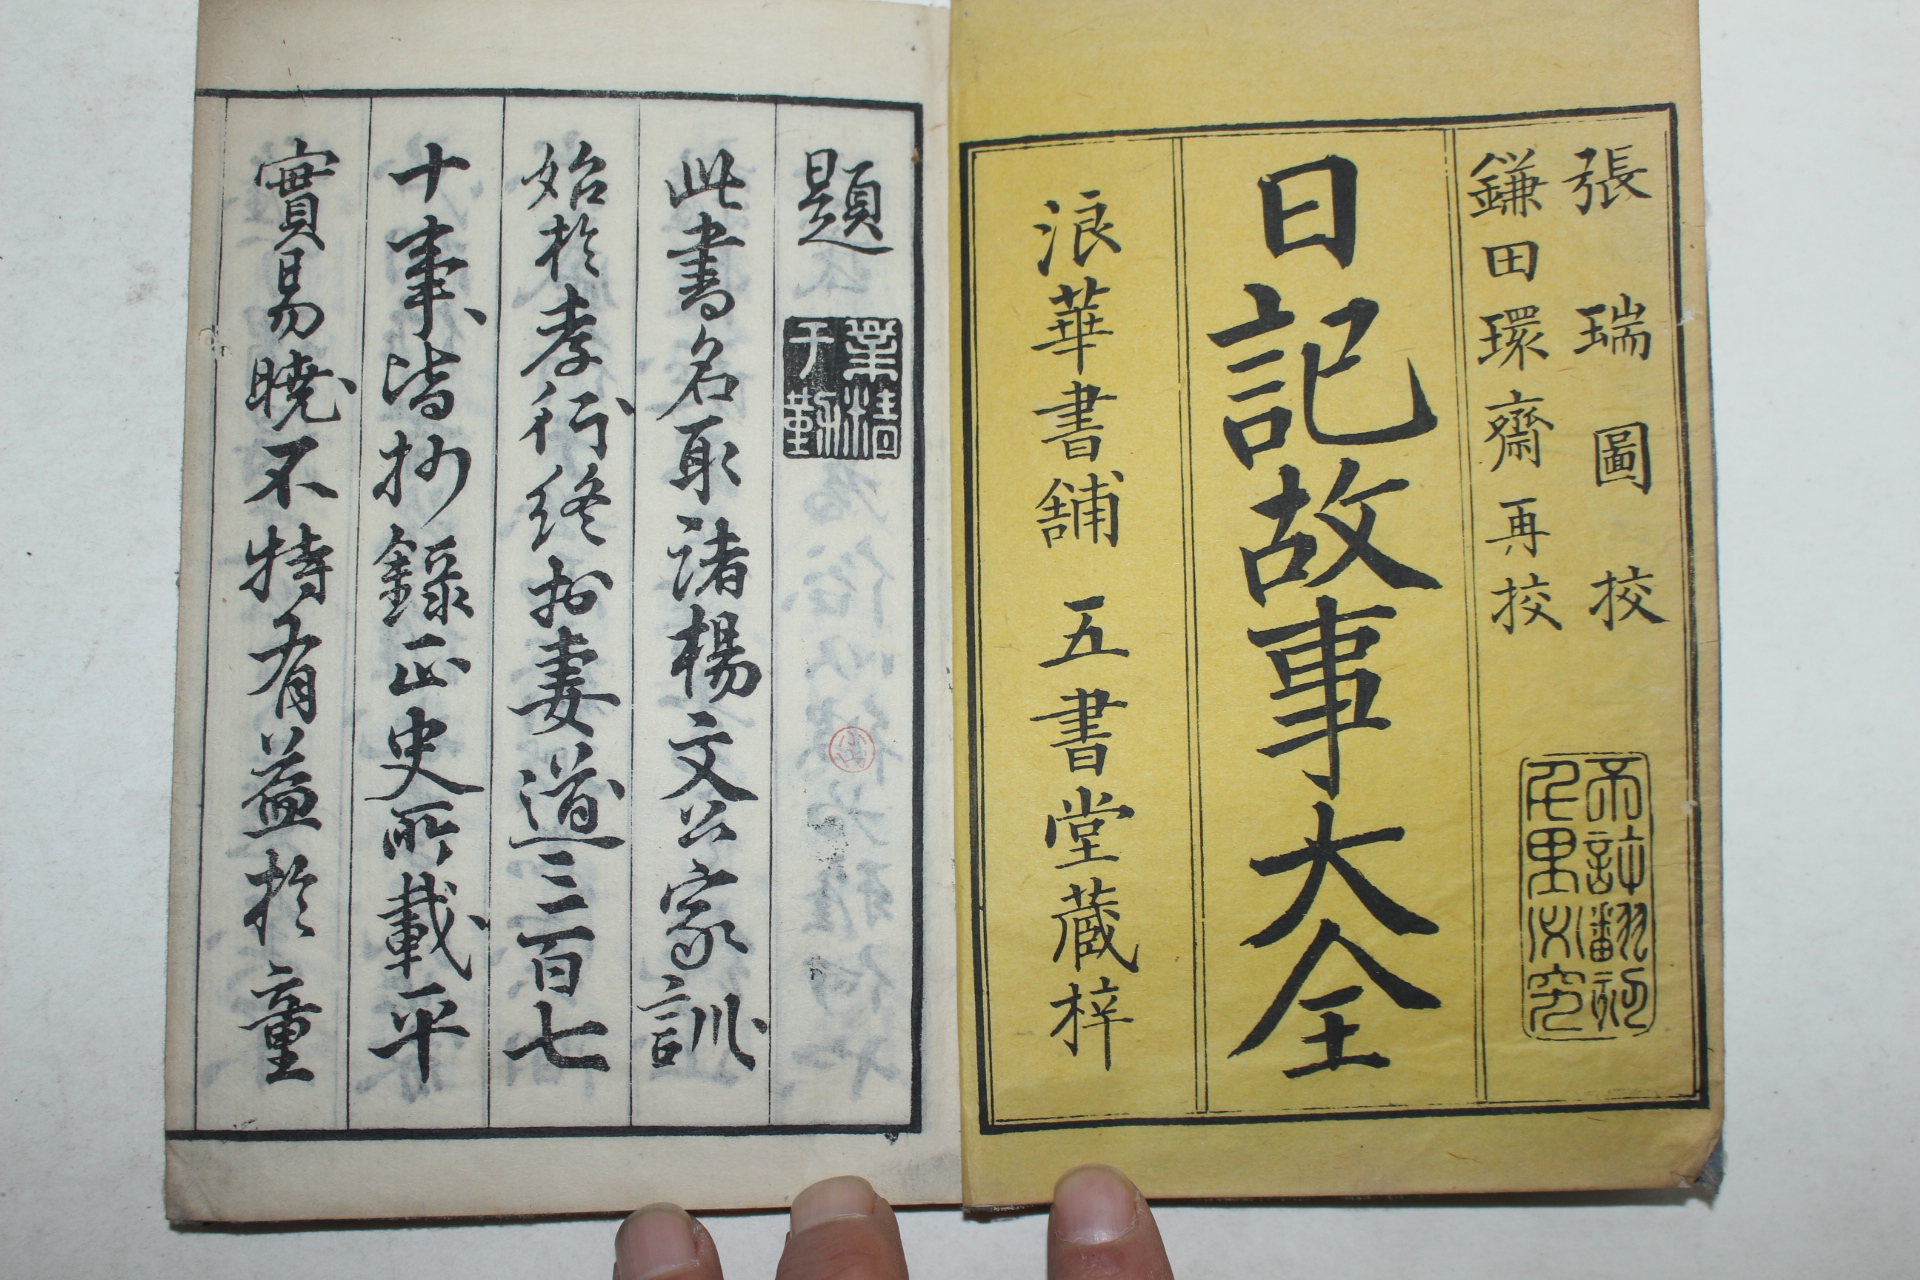 張瑞圖校
鎌田環齋再校
日記故事大全
浪華書舖 五書堂藏梓
不許翻刻
千里必究
題
業精
于勤
此書名取諸楊文公家訓
始於孝行終於妻道三百七
十事皆抄錄正史所載平
實易曉不特有益於童